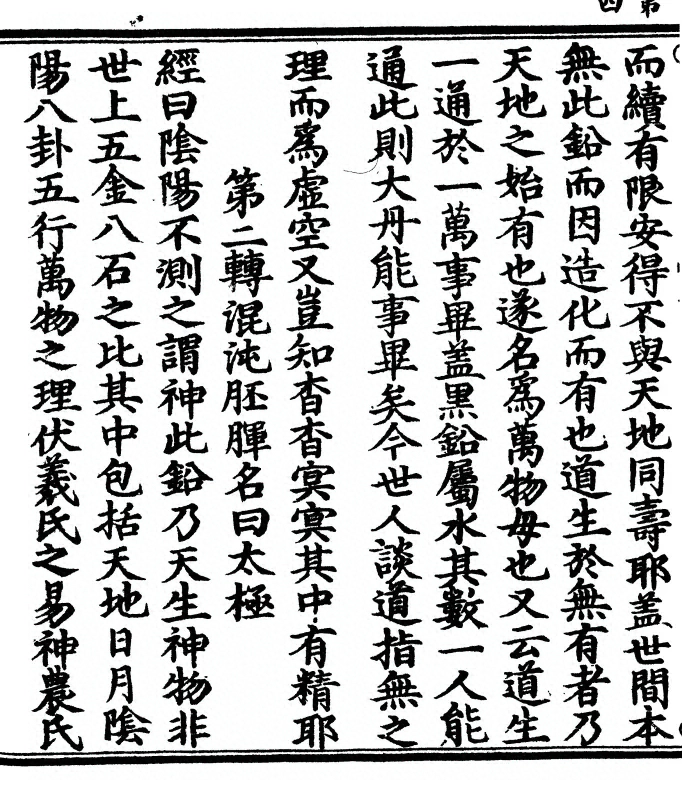 第四
而續有限安得不與天地同壽耶盖世間本
無此鉛而因造化而有也道生於無有者乃
天地之始有也遂名爲萬物母也又云道生
一通於一萬事畢盖黑鉛屬水其數一人能
通此則大丹能事畢矣今世人談道指無之
理而爲虛空又豈知杳杳㝠㝠其中有精耶
第二轉混沌胚腪名曰太極
經曰陰陽不測之謂神此鉛乃天生神物非
世上五金八石之比其中包括天地日月陰
陽八卦五行萬物之理伏羲氏之易神農氏